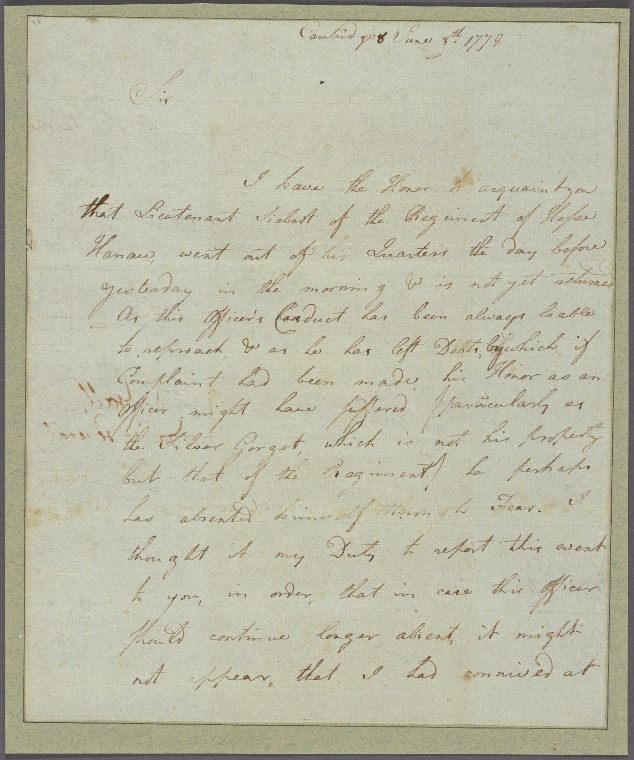 Cambridge June 8th. 1778
Sir
I have the Honor to acquaint you
that Lieutenant Siabert of the Regiment of Hesse
Hanau went out of his Quarters the day before
yesterday in the morning & is not yet returned
As this Officer's Conduct has been always liable
to reproach & as he has left Debts, by which, if
Complaint had been made, his Honor as an
Officer might have suffered (particularly as
the Silver Gorget, which is not his property
but that of the Regiment) he perhaps
has absented himself through Fear. I
thought it my Duty to report this event
to you, in order, that in case this Officer
should continue longer absent, it might
not appear, that I had connived at